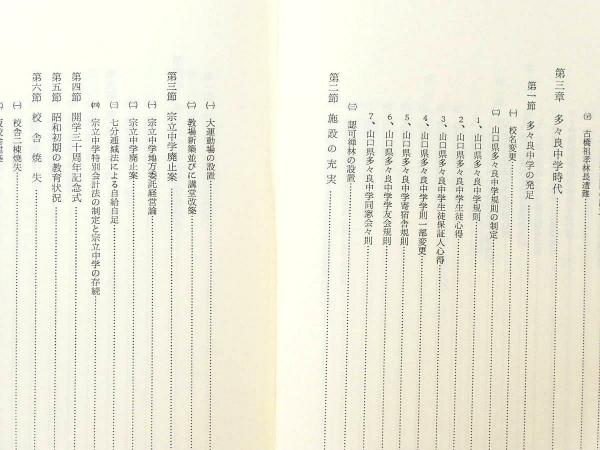 ㈤ 古橋祖孝林長遭難
第三章 多々良中学時代
第一節 多々良中学の発足
㈠ 校名変更
㈡ 山口県多々良中学規則の制定
1、山口県多々良中学規則
2、山口県多々良中学生徒心得
3、山口県多々良中学生徒保証人心得
4、山口県多々良中学学則一部変更
5、山口県多々良中学寄宿舎規則
6、山口県多々良中学学友会規則
7、山口県多々良中学同窓会々則
㈢ 認可禅林の設置
第二節 施設の充実
㈠ 大運動場の設置
㈡ 教場新築並びに講堂改築
第三節 宗立中学廃止案
㈠ 宗立中学地方委託経営論
㈡ 宗立中学廃止案
㈢ 七分逓減法による自給自足
㈣ 宗立中学特別会計法の制定と宗立中学の存続
第四節 開学三十周年記念式
第五節 昭和初期の教育状況
第六節 校舎焼失
㈠ 校舎二棟焼失